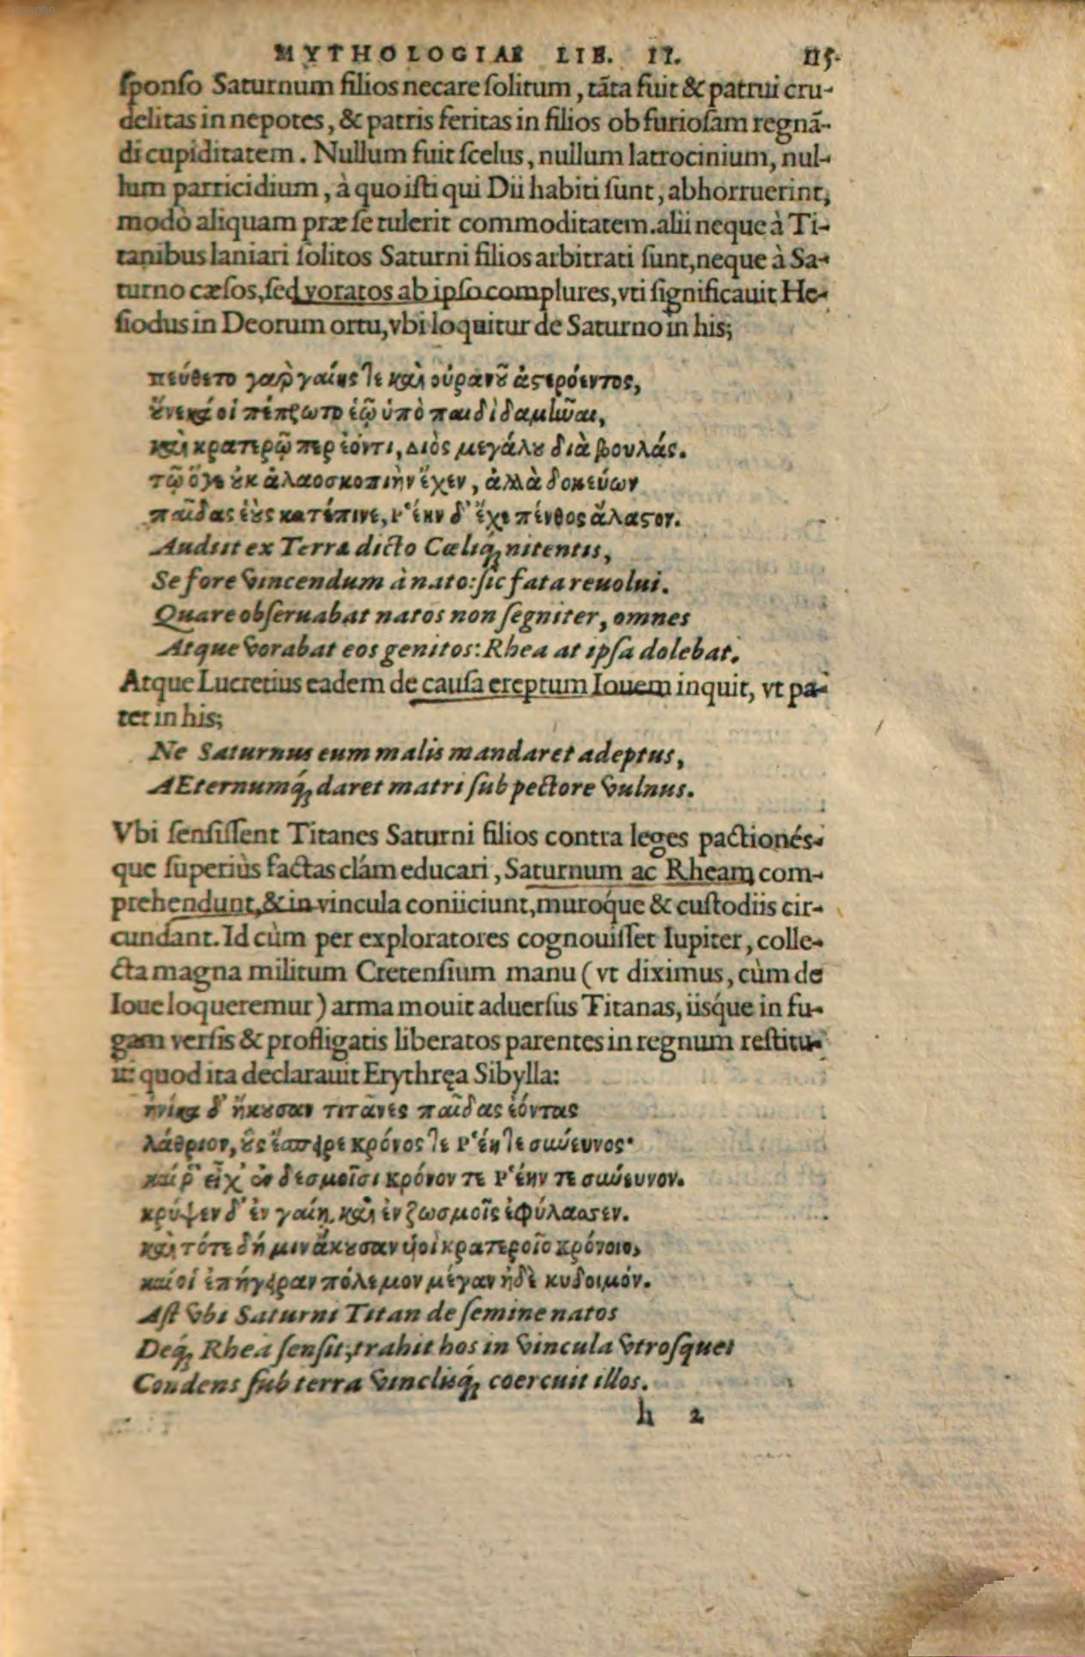 MYTHOLOGIAE LIB. II. 115.
sponso Saturnum filios necare solitum, tāta fuit & patrui cru-
delitas in nepotes, & patris feritas in filios ob furiosam regnā-
di cupiditatem. Nullum fuit scelus, nullum latrocinium, nul-
lum parricidium, à quo isti qui Dii habiti sunt, abhorruerint,
modò aliquam præ se tulerit commoditatem. alii neque à Ti-
tanibus laniari solitos Saturni filios arbitrati sunt, neque à Sa-
turno cæsos, sed voratos ab ipso complures, vti significauit He-
siodus in Deorum ortu, vbi loquitur de Saturno in his;
πεύθετο γαρ γαίης τε καὶ οὐρανοῦ ἀστερόεντος,
οὕνεκά οἱ πέπρωτο ἑῷ ὑπὸ παιδὶ δαμῆναι,
καὶ κρατερῷ περ ἐόντι, Διὸς μεγάλου διὰ βουλάς.
τῷ ὅγε οὐκ ἀλαοσκοπιὴν ἔχεν, ἀλλὰ δοκεύων
παῖδας ἑοὺς κατέπινε, ῥέην δ' ἔχε πένθος ἄλαστον.
Audiit ex Terra dicto Cæliq́ nitentis,
Se fore vincendum à nato: sic fata reuolui.
Quare obseruabat natos non segniter, omnes
Atque vorabat eos genitos: Rhea at ipsa dolebat.
Atque Lucretius eadem de causa ereptum Iouem inquit, vt pa-
tet in his;
Ne Saturnus eum malis mandaret adeptus,
AEternumq́ daret matri sub pectore vulnus.
Vbi sensissent Titanes Saturni filios contra leges pactionés-
que superiùs factas clám educari, Saturnum ac Rheam com-
prehendunt, & in vincula coniiciunt, muróque & custodiis cir-
cundant. Id cùm per exploratores cognouisset Iupiter, colle-
cta magna militum Cretensium manu (vt diximus, cùm de
Ioue loqueremur) arma mouit aduersus Titanas, iisq́ue in fu-
gam versis & profligatis liberatos parentes in regnum restitu-
it: quod ita declarauit Erythręa Sibylla:
ἡνίκα δ' ἤκουσαν τιτᾶνες παῖδας ἐόντας
λάθριον, οὓς ἔσπειρε κρόνος τε ῥέη τε σύνευνος·
καί ῥ' εἶχ' ἐν δεσμοῖσι κρόνον τε ῥέην τε σύνευνον.
κρύψεν δ' ἐν γαίῃ, καὶ ἐν ζωσμοῖς ἐφύλασσεν.
καὶ τότε δή μιν ἄκουσαν υἱοὶ κρατεροῖο κρόνοιο,
καί οἱ ἐπήγειραν πόλεμον μέγαν ἠδὲ κυδοιμόν.
Ast vbi Saturni Titan de semine natos
Deq́ Rhea sensit, trahit hos in vincula vtrosque:
Condens sub terra vinclisq́ coercuit illos.
h 2